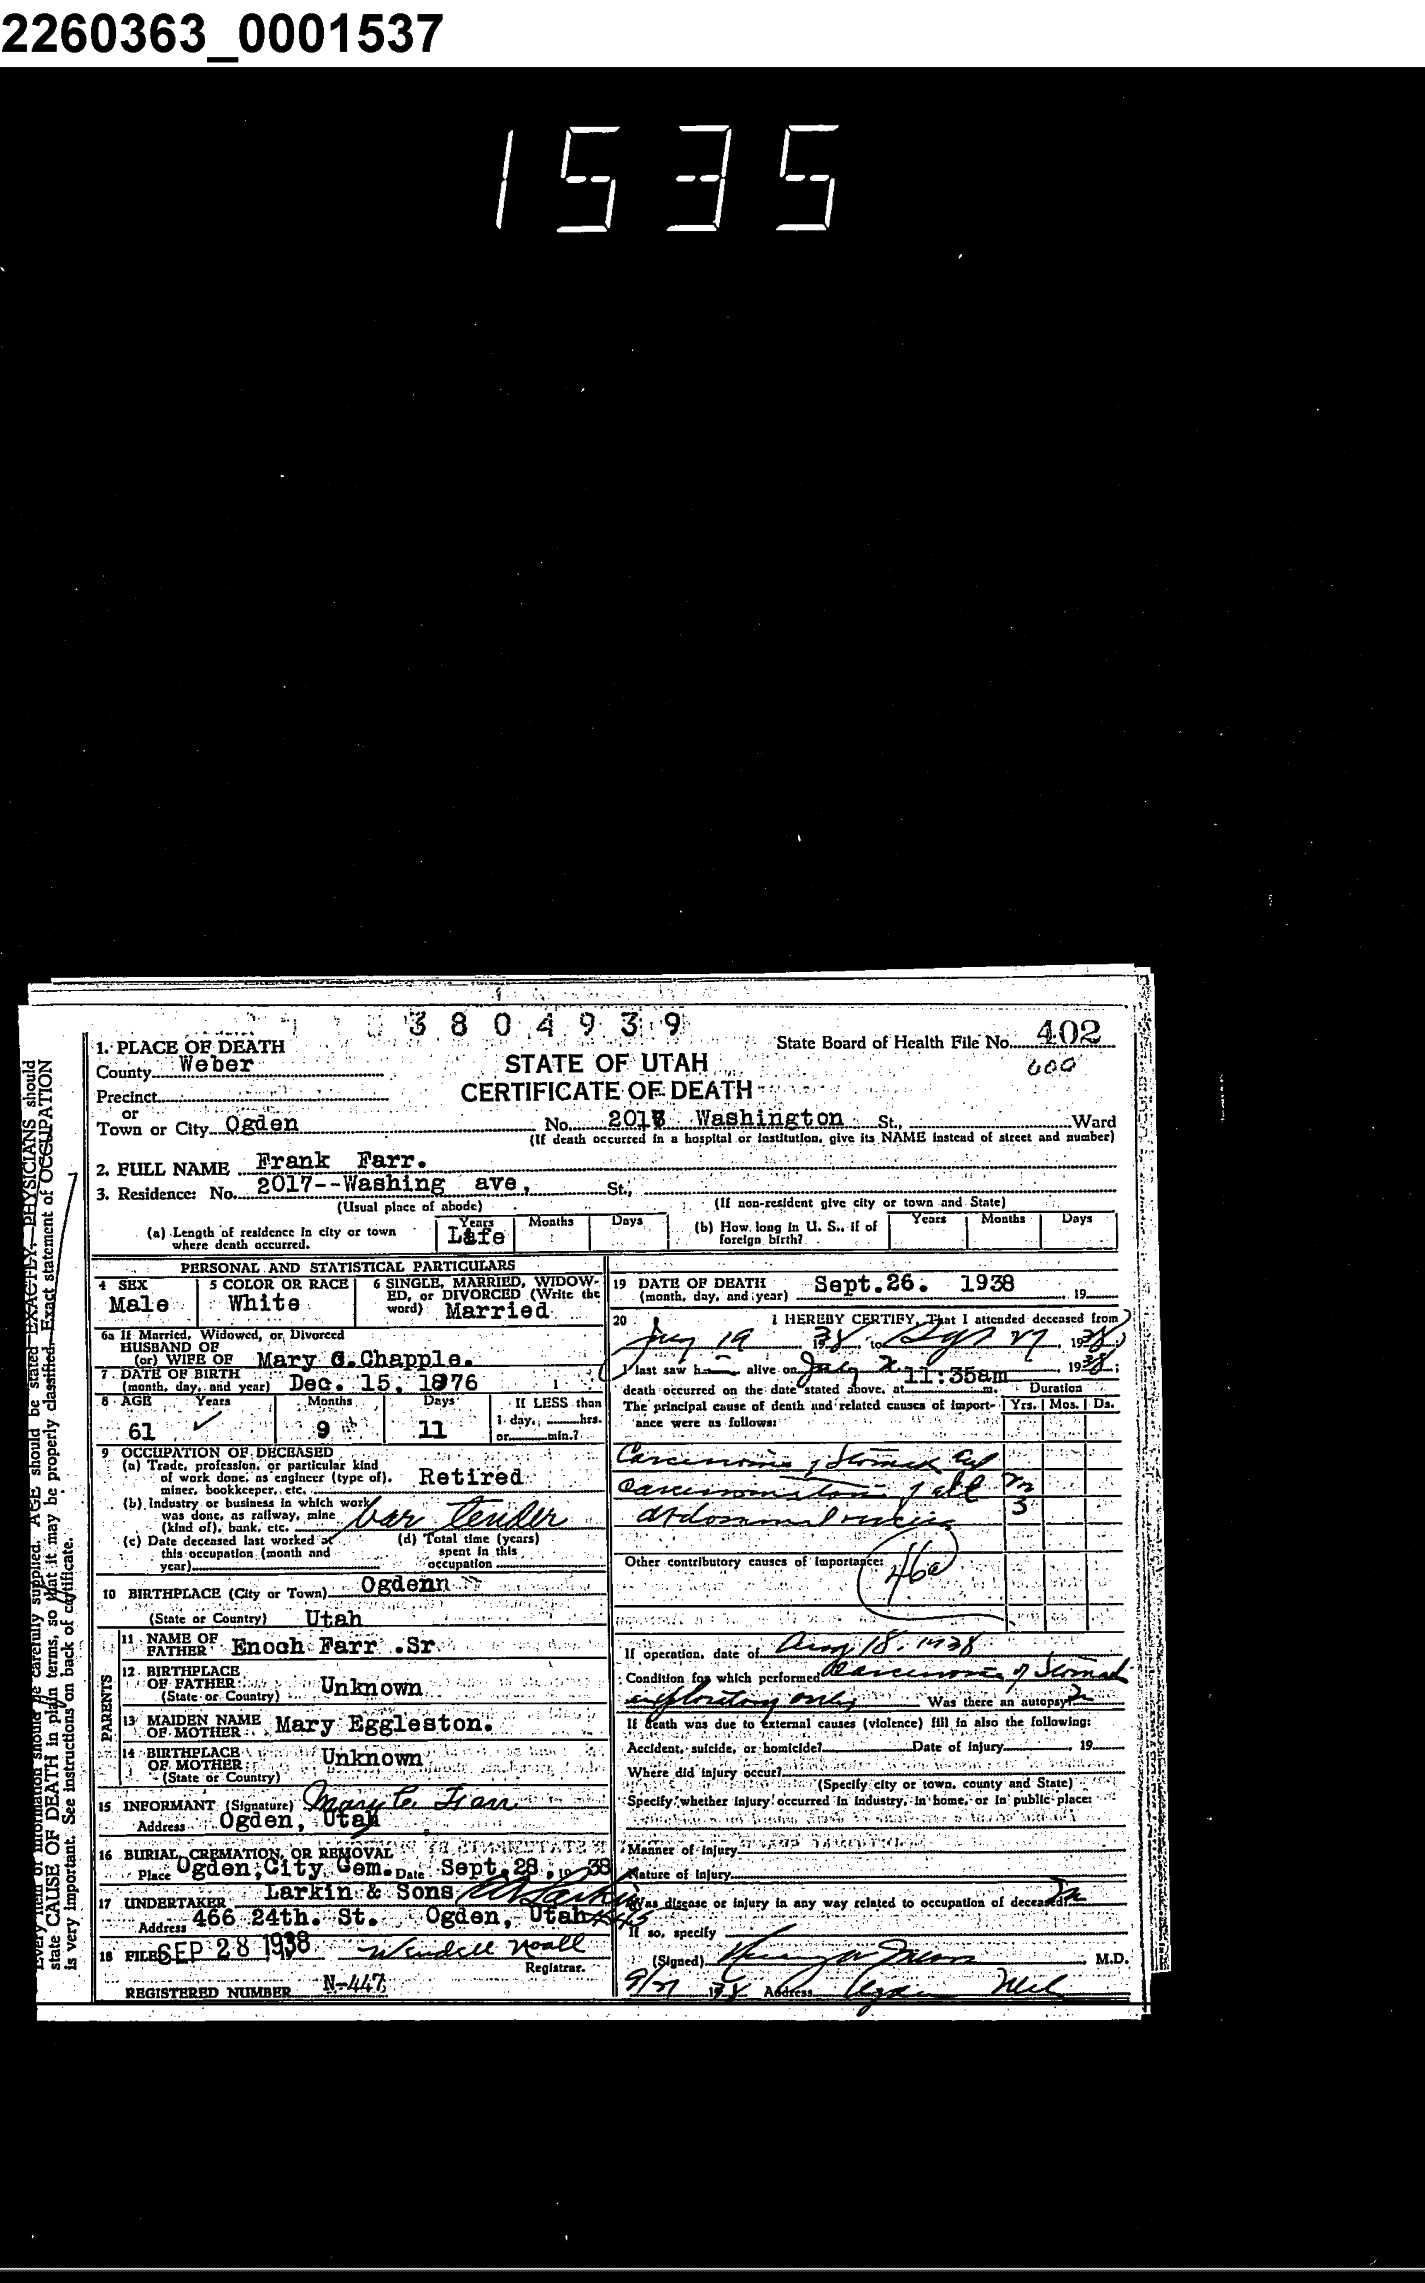 2260363_0001537
1535
3804939
1. PLACE OF DEATH
State Board of Health File No. 402
County Weber
STATE OF UTAH
000
CERTIFICATE OF DEATH
Precinct
or
Town or City Ogden No. 2017 Washington St., Ward
(If death occurred in a hospital or institution, give its NAME instead of street and number)
2. FULL NAME Frank Farr.
3. Residence: No. 2017--Washing ave, St.,
(Usual place of abode) (If non-resident give city or town and State)
(a) Length of residence in city or town where death occurred. Years Life Months Days
(b) How long in U. S., if of foreign birth? Years Months Days
PERSONAL AND STATISTICAL PARTICULARS
4 SEX Male
5 COLOR OR RACE White
6 SINGLE, MARRIED, WIDOW-
ED, or DIVORCED (Write the
word) Married
6a If Married, Widowed, or Divorced
HUSBAND OF
(or) WIFE OF Mary C.Chapple.
7 DATE OF BIRTH
(month, day, and year) Dec. 15, 1876
8 AGE Years Months Days If LESS than
1 day, hrs.
61 9 11 or min.?
9 OCCUPATION OF DECEASED
(a) Trade, profession, or particular kind
of work done, as engineer (type of), Retired
miner, bookkeeper, etc.
(b) Industry or business in which work
was done, as railway, mine bar tender
(kind of), bank, etc.
(c) Date deceased last worked at
this occupation (month and
year)
(d) Total time (years)
spent in this
occupation
10 BIRTHPLACE (City or Town) Ogdenn
(State or Country) Utah
PARENTS
11 NAME OF
FATHER Enoch Farr .Sr
12 BIRTHPLACE
OF FATHER Unknown
(State or Country)
13 MAIDEN NAME
OF MOTHER Mary Eggleston.
14 BIRTHPLACE
OF MOTHER Unknown
(State or Country)
15 INFORMANT (Signature) Mary C. Farr
Address Ogden, Utah
16 BURIAL, CREMATION, OR REMOVAL
Place Ogden,City Cem. Date Sept.28, 19 38
17 UNDERTAKER Larkin & Sons
Address 466 24th. St. Ogden, Utah
18 FILED SEP 28 1938 Wendell Noall
Registrar.
REGISTERED NUMBER N-447
19 DATE OF DEATH
(month, day, and year) Sept.26. 1938 19
20 I HEREBY CERTIFY, That I attended deceased from
19 38 to 1938
I last saw h alive on 1938;
death occurred on the date stated above, at 11:35am m. Duration
The principal cause of death and related causes of import-
ance were as follows: Yrs. Mos. Ds.
Carcinoma of Stomach and
carcinomatosis of all
3
abdominal viscera
Other contributory causes of importance:
46a
If operation, date of Aug 18. 1938
Condition for which performed Carcinoma of Stomach
exploratory only Was there an autopsy? No
If death was due to external causes (violence) fill in also the following:
Accident, suicide, or homicide? Date of injury 19
Where did injury occur?
(Specify city or town, county and State)
Specify whether injury occurred in industry, in home, or in public place:
Manner of injury
Nature of injury
Was disease or injury in any way related to occupation of deceased? No
If so, specify
(Signed) M.D.
9/27 1938 Address Ogden Utah
Every item of information should be carefully supplied. AGE should be stated EXACTLY. PHYSICIANS should
state CAUSE OF DEATH in plain terms, so that it may be properly classified. Exact statement of OCCUPATION
is very important. See instructions on back of certificate.